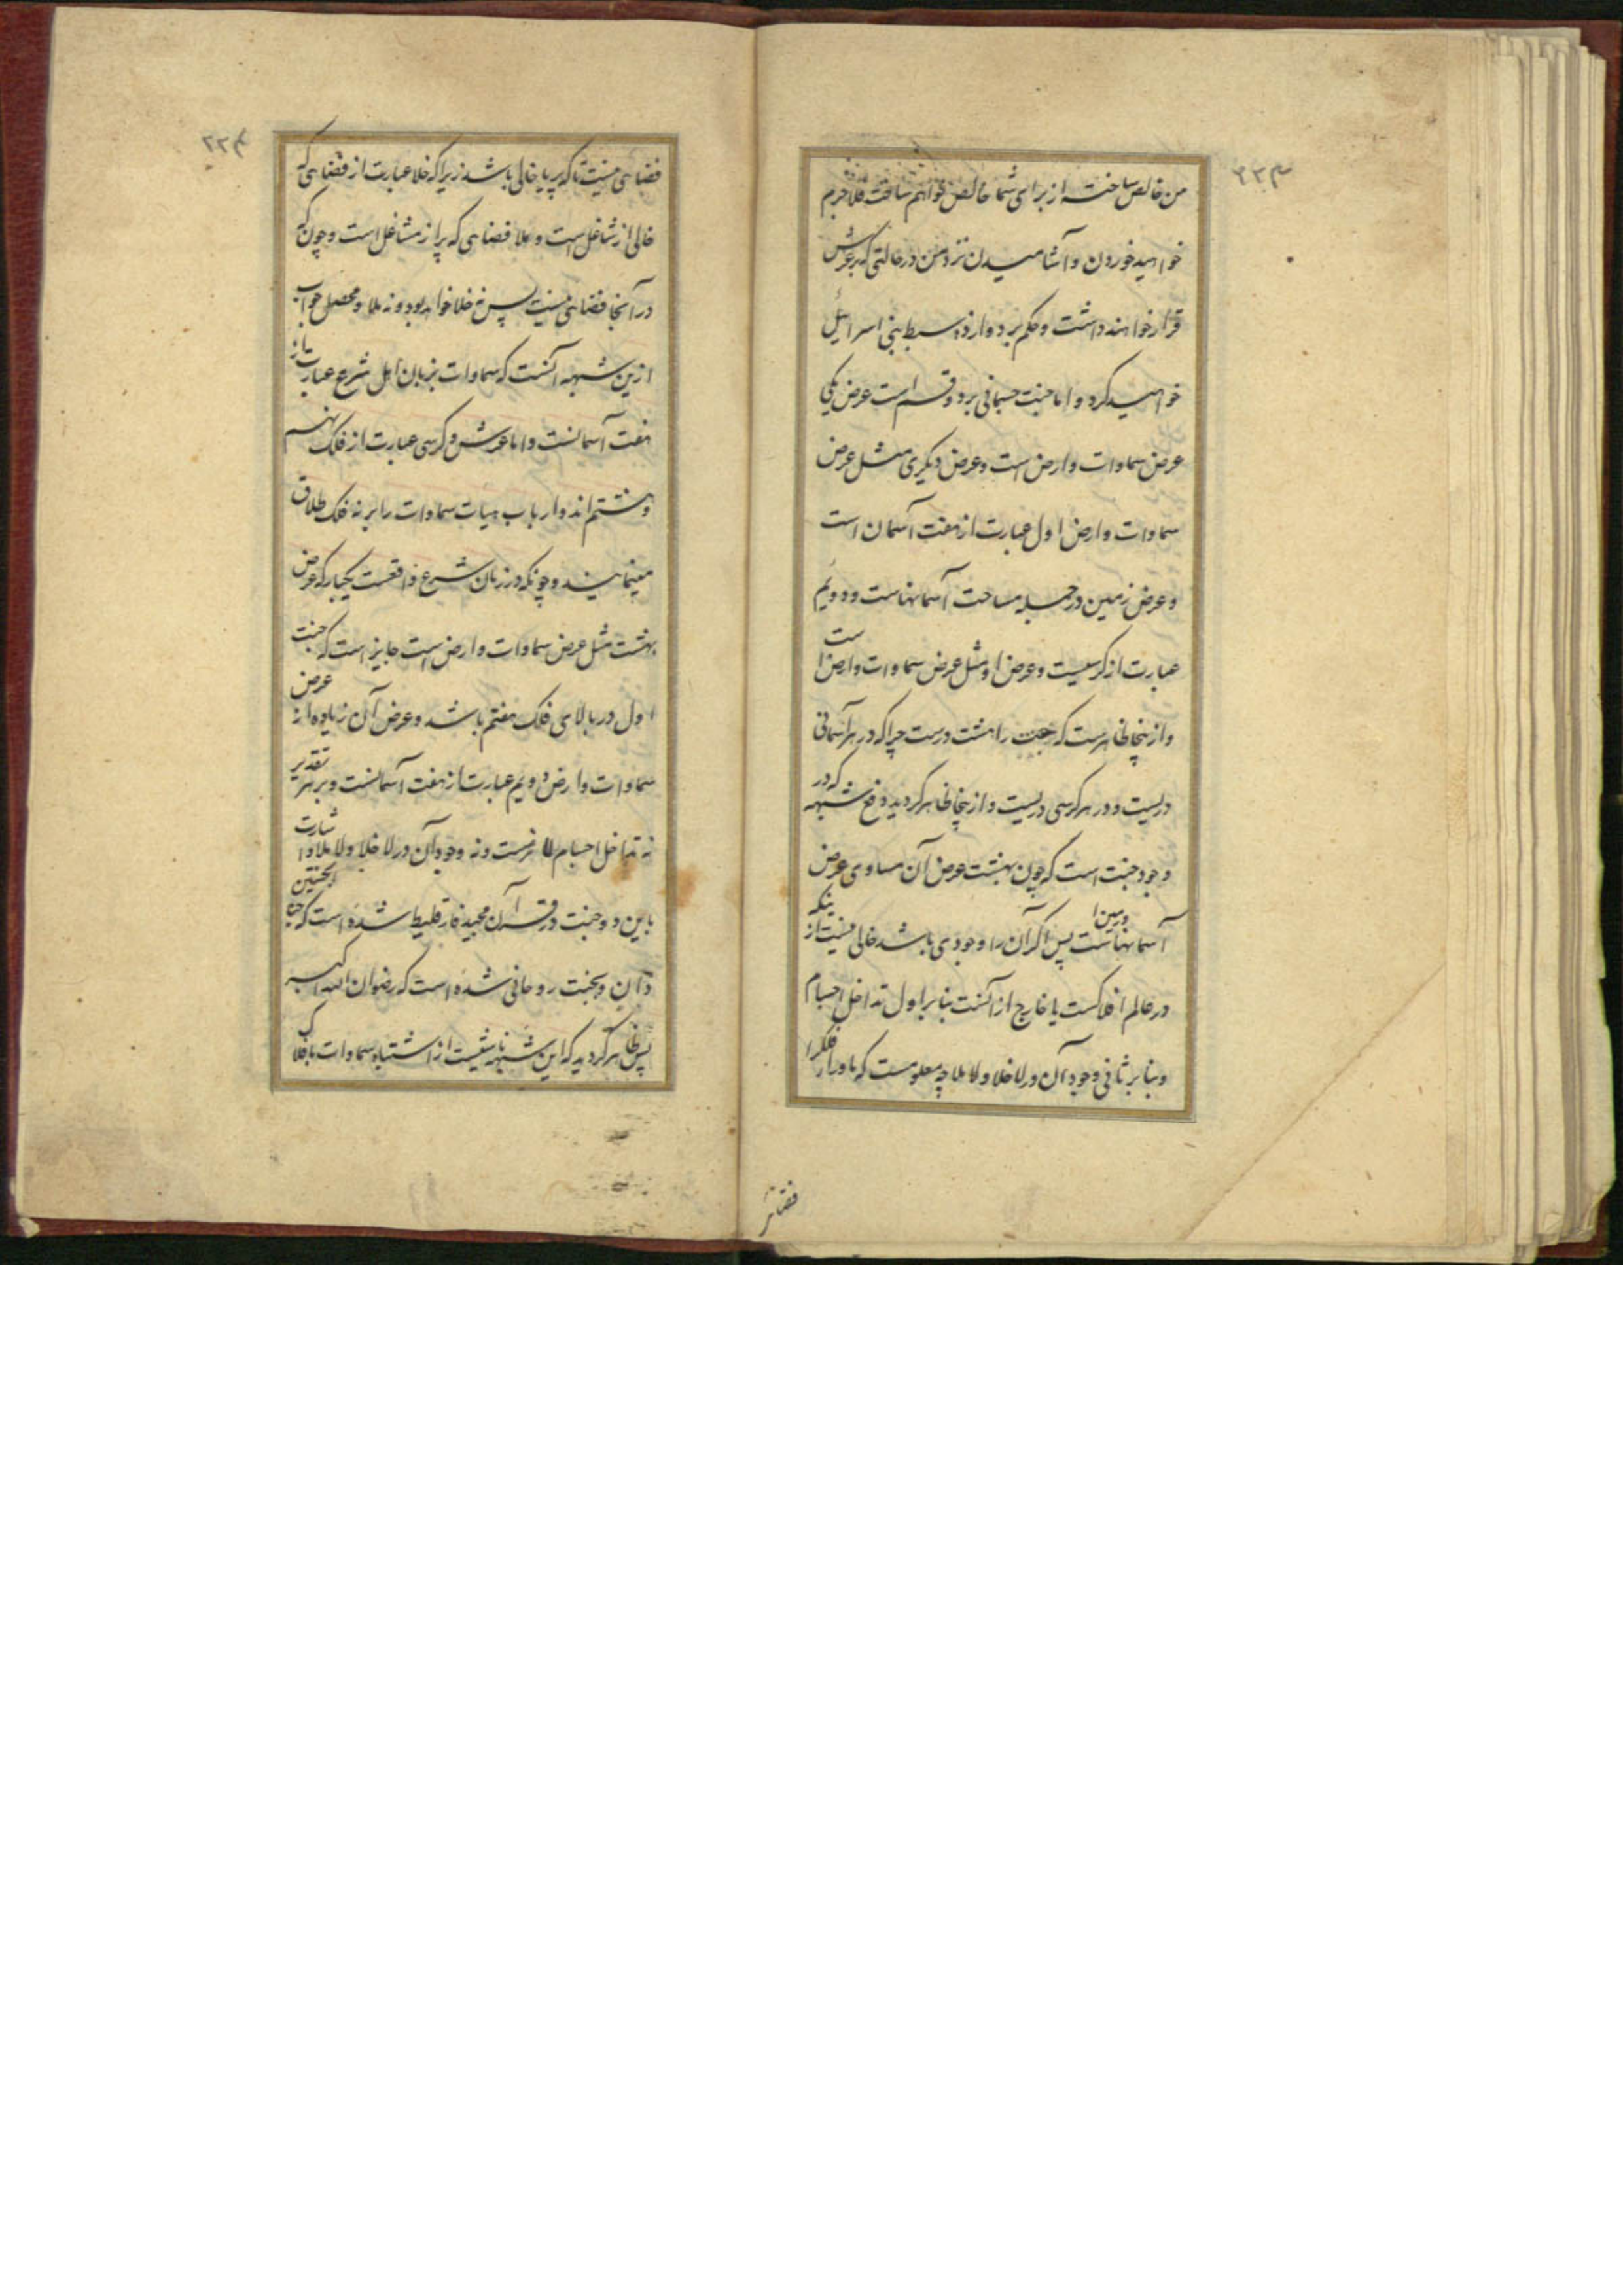 من خالص ساخته از برای شما خالص خواهم ساخت فلاجرم
خواهید خوردن و آشامیدن نزد من در حالتی که بر عرش
قرار خواهند داشت و حکم بر دوازده سبط بنی اسرائیل
خواهید کرد و اما جنت جسمانی بر دو قسم است عرض یکی
عرض سماوات و ارض است و عرض دیگری مثل عرض
سماوات و ارض اول عبارت از هفت آسمان است
و عرض زمین در جمله مساحت آسمانهاست و دویم
عبارت از کرسیست و عرض او مثل عرض سماوات و ارض است
و ازینجا ظاهرست که جنت را هشت درست چراکه در هر آسمانی
دریست و در هر کرسی دریست و ازینجا ظاهر گردید دفع شبهه که در
وجود جنت است که چون بهشت عرض آن مساوی عرض
آسمانهاست و زمین پس اگر آن را وجودی باشد خالی نیست از اینکه
در عالم افلاکست یا خارج از آنست بنابر اول تداخل اجسام
و بنابر ثانی وجود آن در لا خلا و لا ملا چه معلومست که ماورا افلاک را
فضائی
فضائی نیست تا که پر یا خالی باشد زیراکه خلا عبارت از فضائی که
خالی از شاغل است و ملا فضائی که پر از مشاغل است و چون که
در آنجا فضائی نیست پس نه خلا خواهد بود و نه ملا و محصل جواب
ازین شبهه آنست که سماوات بزبان اهل شرع عبارت از
هفت آسمانست و اما عرش و کرسی عبارت از فلک نهم
و هشتم اند و ارباب هیات سماوات را بر نه فلک اطلاق
مینمایند و چونکه در زبان شرع واقعست یکبار که عرض
بهشت مثل عرض سماوات و ارض است جایز است که جنت
اول در بالای فلک هفتم باشد و عرض آن زیاده از عرض
سماوات و ارض و دویم عبارت از هفت آسمانست و بر هر تقدیر
نه تداخل اجسام لازمست و نه وجود آن در لا خلا و لا ملا و اشارت
باین دو جنت در قرآن مجید فارقلیط شده است که الجنتین
دان و بجنت روحانی شده است که رضوان الله اکبر
پس ظاهر گردید که این شبهه ناشیست از اشتباه سماوات بافلاک